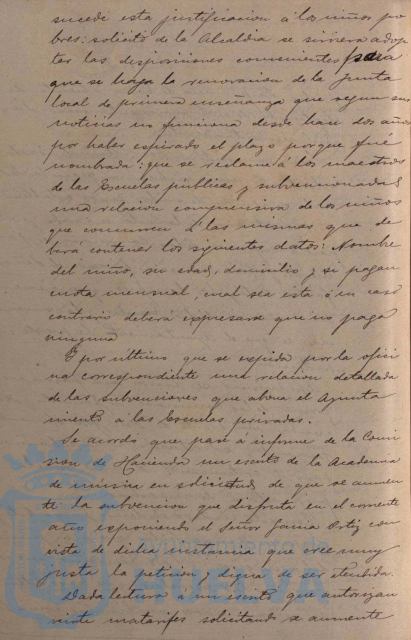 sucede esta justificacion á los niños po
bres: solicitó de la Alcaldia se sirviera adop
tar las disposiciones convenientes para
que se haga la renovacion de la Junta
local de primera enseñanza que segun sus
noticias no funciona desde hace dos años
por haber espirado el plazo porque fué
nombrada: que se reclame á los maestros
de las Escuelas públicas y subvencionadas
una relacion comprensiva de los niños
que concurren á las mismas que de
berá contener los siguientes datos: Nombre
del niño, su edad, domicilio y si pagan
cuota mensual, cual sea esta ó en caso
contrario deberá expresarse que no paga
ninguna
Y por ultimo que se expida por la ofici
na correspondiente una relacion detallada
de las subvenciones que abona el Ayunta
miento á las Escuelas privadas.
Se acordó que pase á informe de la Comi
sion de Hacienda un escrito de la Academia
de musica en solicitud de que se aumen
te la subvencion que disfruta en el corriente
año exponiendo el Señor Garcia Ortiz con
vista de dicha instancia que cree muy
justa la peticion y digna de ser atendida.
Dada lectura á un escrito que autorizan
veinte matarifes solicitando se aumente
Ayuntamiento de
HUELVA